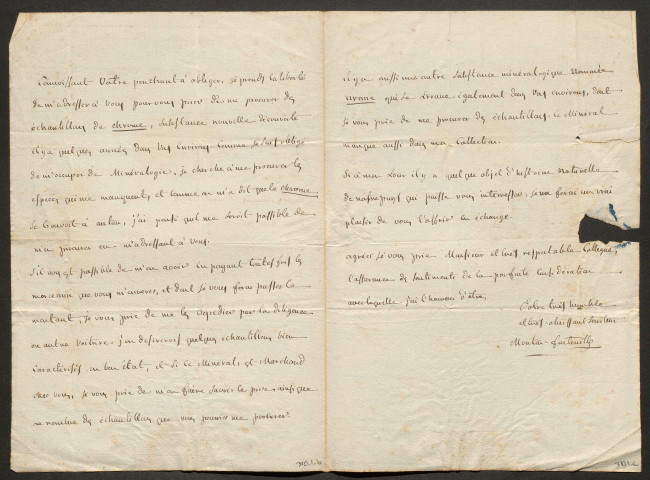 Connoissant Votre penchant à obliger, je prends la liberté
de m'adresser à vous pour vous prier de me procurer des
échantillons de chrome, substance nouvelle découverte
il y a quelques années dans vos environs. Comme je suis obligé
de m'occuper de Minéralogie, je cherche à me procurer les
espèces qui me manquent, et comme on m'a dit que le chrome
se trouvoit à autun, j'ai pensé qu'il me seroit possible de
m'en procurer en m'adressant à vous.
S'il vous est possible de m'en avoir en payant toutes fois les
morceaux que vous m'enverrez, et dont je vous ferai passer le
montant, je vous prie de me les expedier par la diligence
ou autre voiture. j'en desirerois quelques échantillons bien
caractérisés en bon état, et si le Minéral est Marchand
chez vous, je vous prie de m'en faire savoir le prix, ainsi que
le nombre des échantillons que vous pourriez me procurer.
il y a aussi une autre substance minéralogique nommée
urane qui se trouve également dans vos environs, dont
je vous prie de me procurer des échantillons. ce Minéral
manque aussi dans ma Collection.
Si à mon tour il y a quelque objet d'histoire naturelle
de notre pays qui puisse vous interresser, je me ferai un vrai
plaisir de vous l'offrir en échange.
agréez je vous prie Monsieur et très respectable Collegue,
l'assurance des sentiments de la parfaite Considération
avec laquelle j'ai l'honneur d'être,
Votre très humble
et très obeissant serviteur
Moulin-